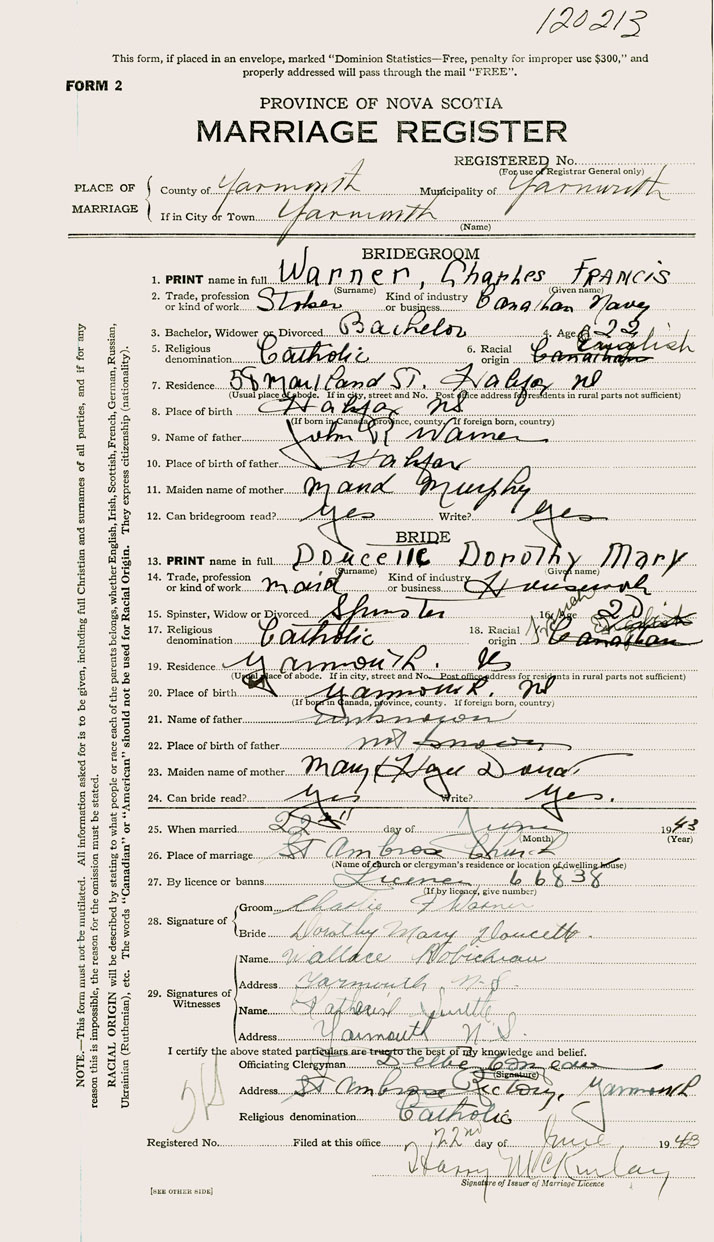 120213
This form, if placed in an envelope, marked "Dominion Statistics—Free, penalty for improper use $300," and
properly addressed will pass through the mail "FREE".
FORM 2
PROVINCE OF NOVA SCOTIA
MARRIAGE REGISTER
REGISTERED No.
(For use of Registrar General only)
PLACE OF MARRIAGE
County of Yarmouth Municipality of Yarmouth
If in City or Town Yarmouth
(Name)
BRIDEGROOM
1. PRINT name in full Warner, Charles FRANCIS
(Surname) (Given name)
2. Trade, profession or kind of work Stoker Kind of industry or business Canadian Navy
3. Bachelor, Widower or Divorced Bachelor 4. Age 22
5. Religious denomination Catholic 6. Racial origin Canadian English
7. Residence 58 Maitland St. Halifax NS
(Usual place of abode. If in city, street and No. Post office address for residents in rural parts not sufficient)
8. Place of birth Halifax NS
(If born in Canada, province, county. If foreign born, country)
9. Name of father John Warner
10. Place of birth of father Halifax
11. Maiden name of mother Maud Murphy
12. Can bridegroom read? Yes Write? Yes
BRIDE
13. PRINT name in full Doucette Dorothy Mary
(Surname) (Given name)
14. Trade, profession or kind of work maid Kind of industry or business Housework
15. Spinster, Widow or Divorced Spinster 16. Age 20
17. Religious denomination Catholic 18. Racial origin Canadian English
19. Residence Yarmouth. NS
(Usual place of abode. If in city, street and No. Post office address for residents in rural parts not sufficient)
20. Place of birth Yarmouth. NS
(If born in Canada, province, county. If foreign born, country)
21. Name of father unknown
22. Place of birth of father not known
23. Maiden name of mother Mary
24. Can bride read? Yes Write? Yes.
25. When married 22nd day of June 1943
(Month) (Year)
26. Place of marriage St Ambrose Church
(Name of church or clergyman's residence or location of dwelling house)
27. By licence or banns Licence 66838
(If by licence, give number)
28. Signature of
Groom Charlie F Warner
Bride Dorothy Mary Doucette.
29. Signatures of Witnesses
Name Wallace Robicheau
Address Yarmouth N.S.
Name Surette
Address Yarmouth N.S.
I certify the above stated particulars are true to the best of my knowledge and belief.
Officiating Clergyman Comeau
(Signature)
Address St Ambrose Rectory, Yarmouth
Religious denomination Catholic
Registered No. Filed at this office 22nd day of June 1943
Harry McKinlay
Signature of Issuer of Marriage Licence
[SEE OTHER SIDE]
NOTE.—This form must not be mutilated. All information asked for is to be given, including full Christian and surnames of all parties, and if for any
reason this is impossible, the reason for the omission must be stated.
RACIAL ORIGIN will be described by stating to what people or race each of the parents belongs, whether English, Irish, Scottish, French, German, Russian,
Ukrainian (Ruthenian), etc. The words "Canadian" or "American" should not be used for Racial Origin. They express citizenship (nationality).